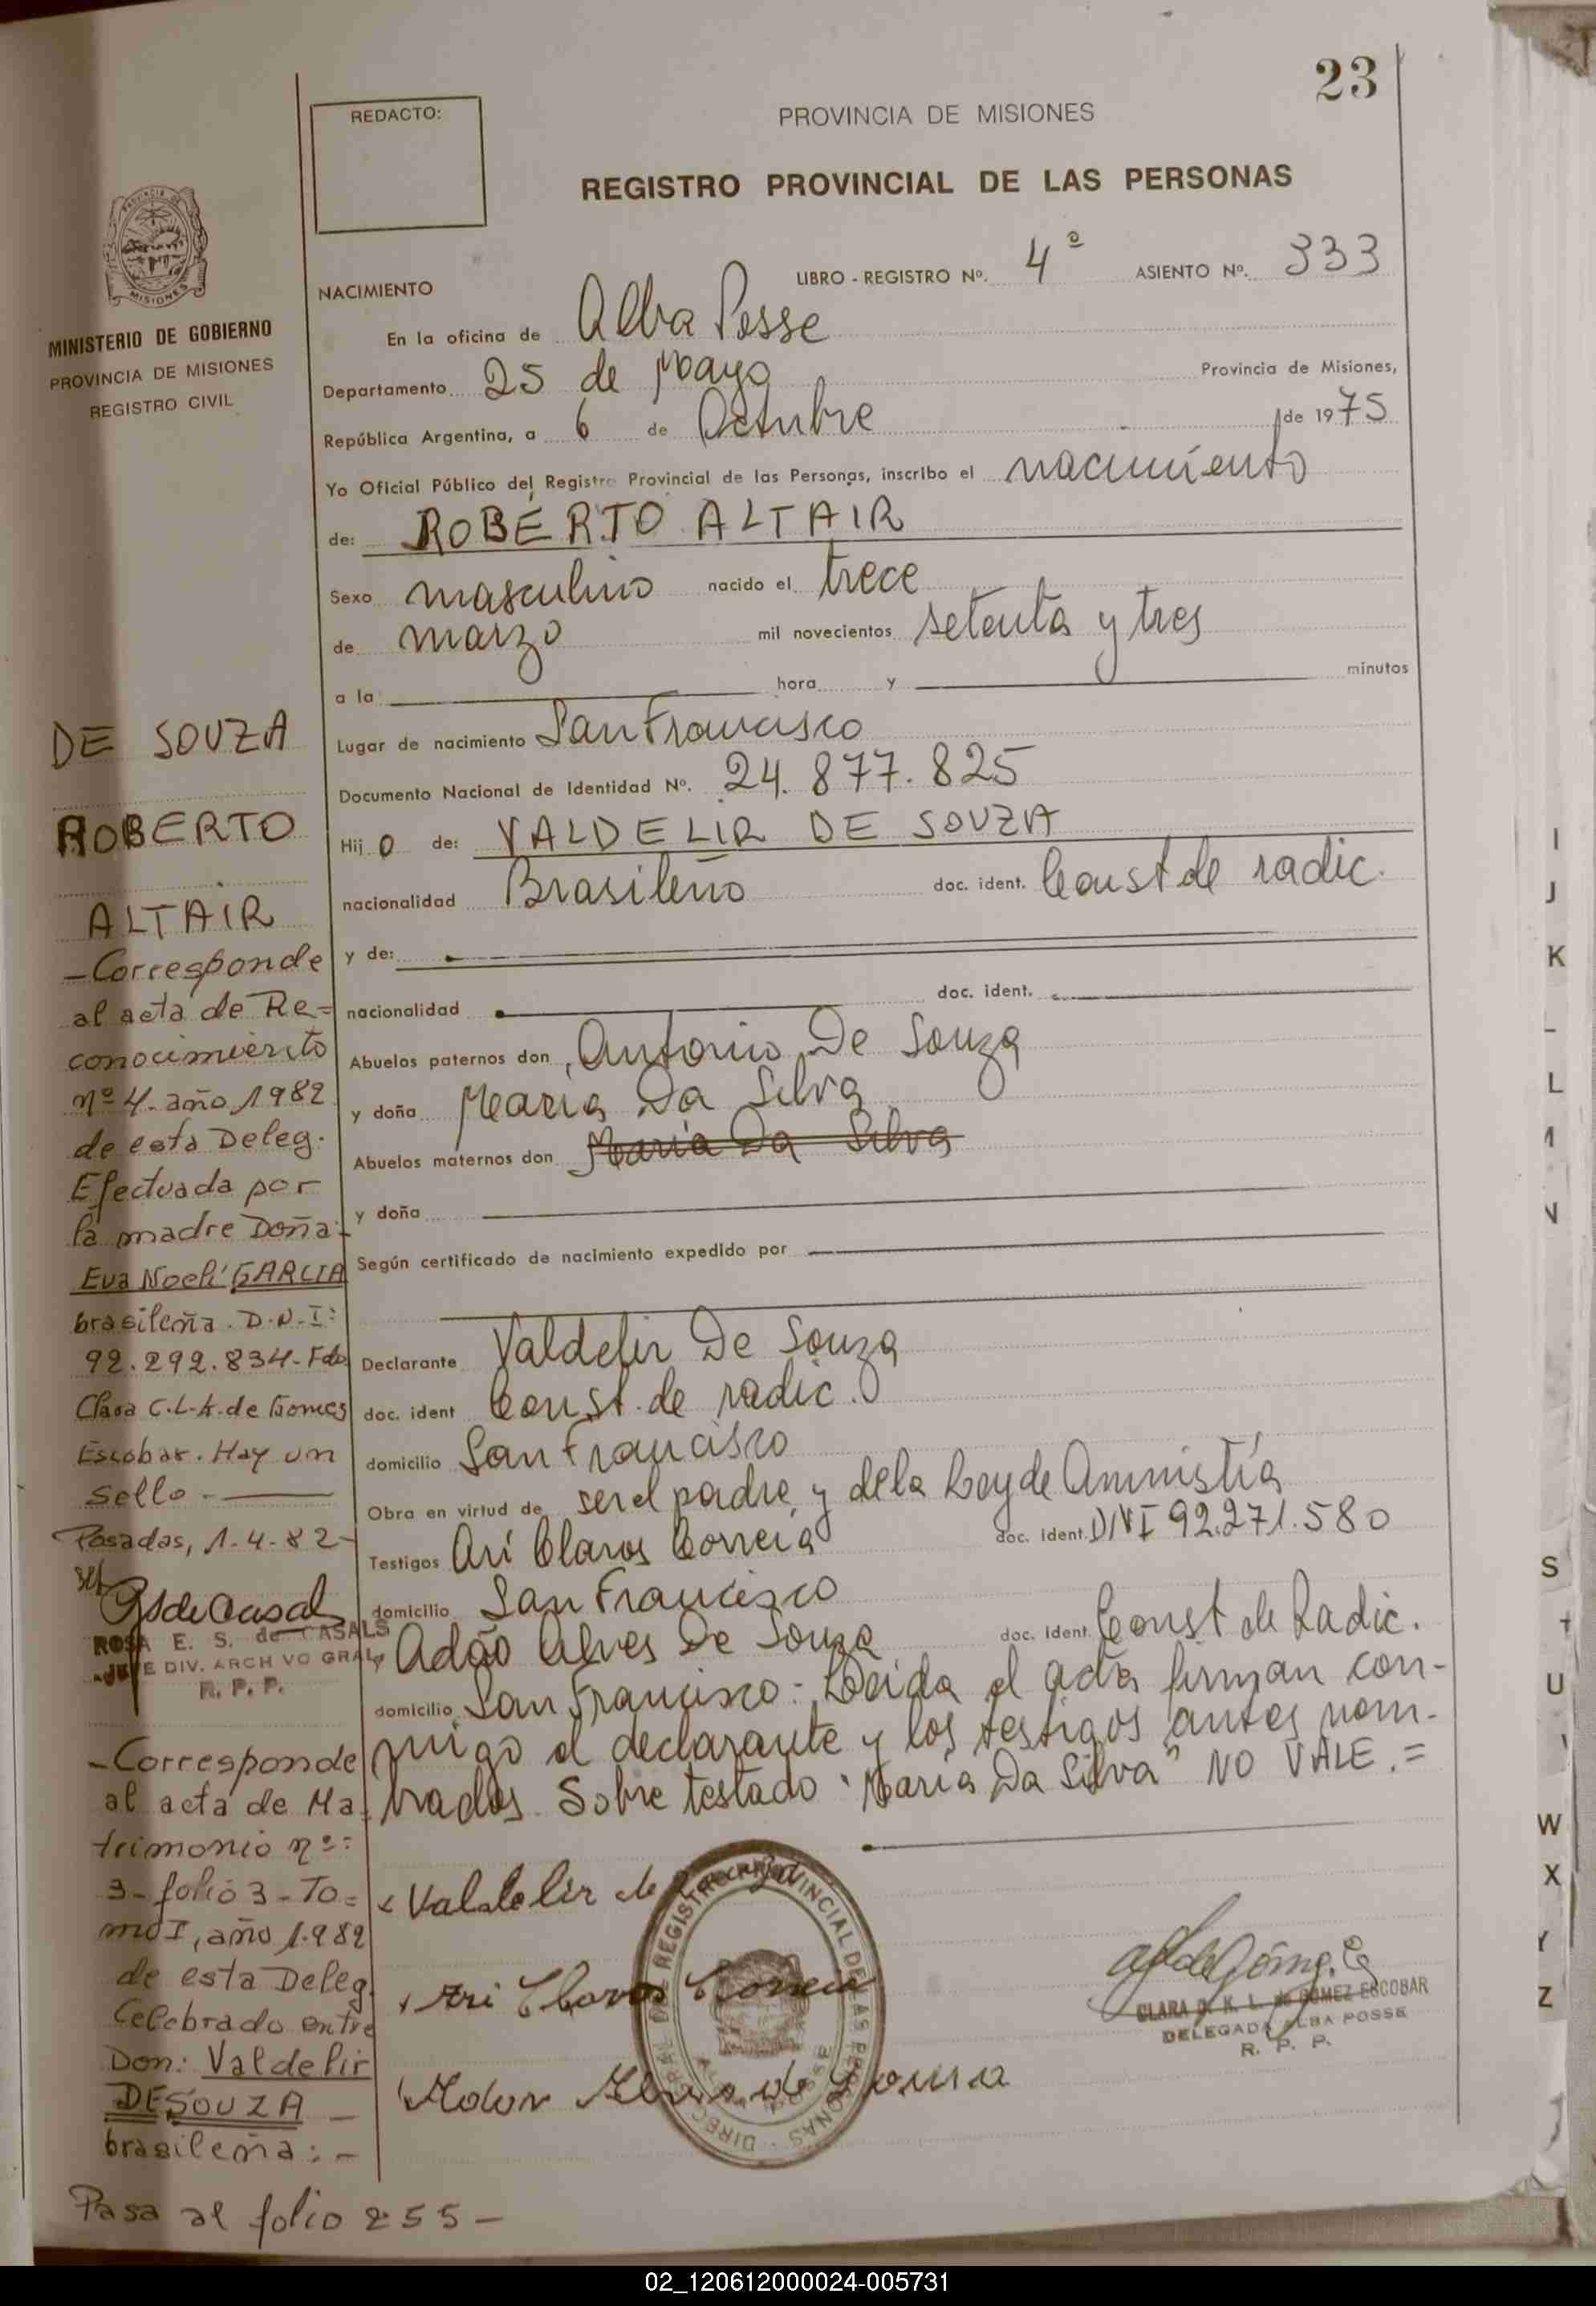 23
REDACTO:
PROVINCIA DE MISIONES
REGISTRO PROVINCIAL DE LAS PERSONAS
MISIONES
MINISTERIO DE GOBIERNO
PROVINCIA DE MISIONES
REGISTRO CIVIL
NACIMIENTO
LIBRO - REGISTRO Nº. 4º ASIENTO Nº. 333
En la oficina de Alba Posse
Departamento 25 de Mayo Provincia de Misiones,
República Argentina, a 6 de Octubre de 1975
Yo Oficial Público del Registro Provincial de las Personas, inscribo el nacimiento
de: ROBERTO ALTAIR
Sexo masculino nacido el trece
de marzo mil novecientos setenta y tres
a la hora y minutos
Lugar de nacimiento San Francisco
Documento Nacional de Identidad Nº. 24.877.825
Hijo de: VALDELIR DE SOUZA
nacionalidad Brasileño doc. ident. Const de radic.
y de:
nacionalidad doc. ident.
Abuelos paternos don Antonio De Souza
y doña María Da Silva
Abuelos maternos don María Da Silva
y doña
Según certificado de nacimiento expedido por
Declarante Valdelir De Souza
doc. ident Const. de radic.
domicilio San Francisco
Obra en virtud de ser el padre y de la Ley de Amnistía
Testigos Ari Claros Correia doc. ident. DNI 92.271.580
domicilio San Francisco
Adão Alves De Souza doc. ident. Const de Radic.
domicilio San Francisco:- Leída el acta firman con-
migo el declarante y los testigos antes nom-
brados. Sobre testado "María Da Silva" NO VALE.=
Valdelir de
Ari Claros Correia
Alves de Souza
DIRECCION GRAL DEL REGISTRO PROVINCIAL DE LAS PERSONAS
ALBA POSSE
CLARA C. K. L. de GOMEZ ESCOBAR
DELEGADA ALBA POSSE
R. P. P.
DE SOUZA
ROBERTO
ALTAIR
-Corresponde
al acta de Re=
conocimiento
nº 4- año 1982
de esta Deleg.
Efectuada por
la madre Doña:-
Eva Noelí GARCIA
brasileña. D.N.I:
92.292.834-Fdo
Clara C.L.K. de Gomes
Escobar. Hay un
Sello.-
Posadas, 1-4-82-
ROSA E. S. de CASALS
JEFE DIV. ARCHIVO GRAL
R. P. P.
-Corresponde
al acta de Ma=
trimonio nº:
3-folio 3-To=
mo I, año 1.982
de esta Deleg.
Celebrado entre
Don: Valdelir
DE SOUZA -
brasileña:-
Pasa al folio 255-
I
J
K
-
L
N
S
T
U
W
X
Y
Z
02_120612000024-005731